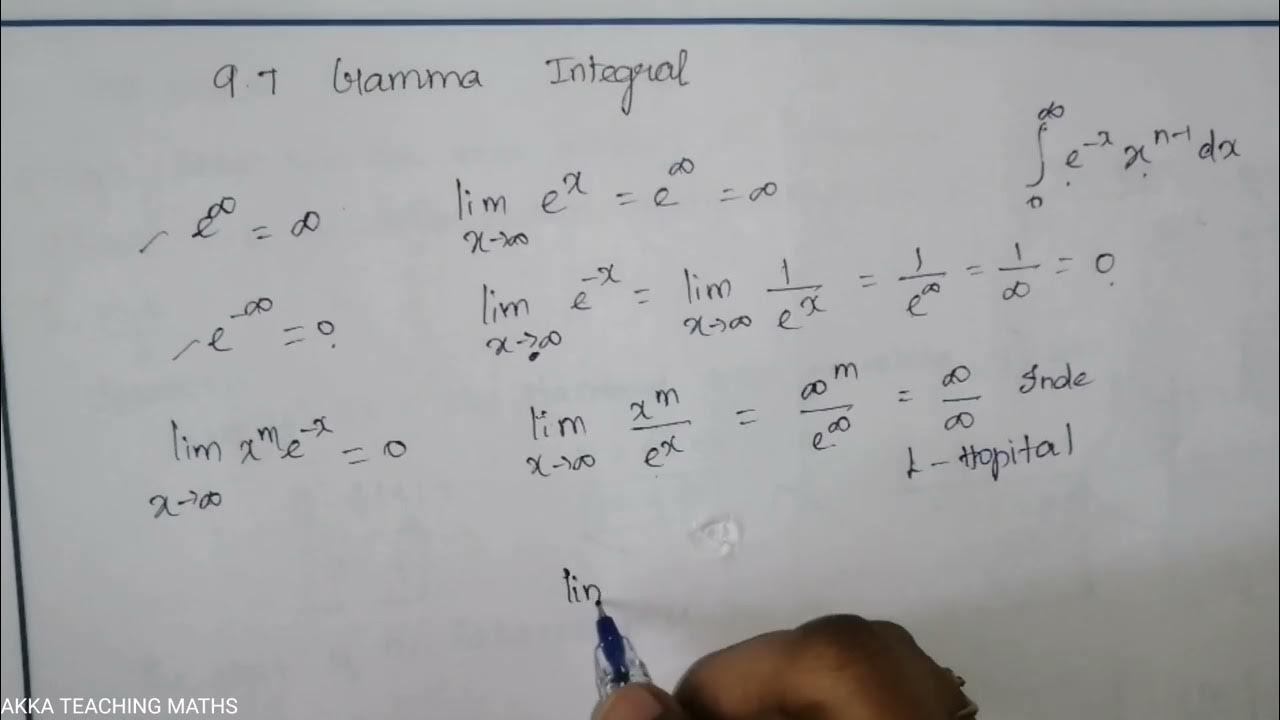 9.7 Gamma Integral
∫₀^∞ e^{-x} x^{n-1} dx
e^∞ = ∞
lim_{x→∞} e^x = e^∞ = ∞
e^{-∞} = 0
lim_{x→∞} e^{-x} = lim_{x→∞} 1/e^x = 1/e^∞ = 1/∞ = 0
lim_{x→∞} x^m e^{-x} = 0
lim_{x→∞} x^m/e^x = ∞^m/e^∞ = ∞/∞ Inde
L-Hopital
lim
AKKA TEACHING MATHS